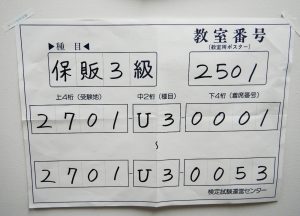 ▶種 目◀
教室番号
(教室用ポスター)
保販3級
2501
上4桁(受験地) 中2桁(種目) 下4桁(着席番号)
2701 U3 0001
~
2701 U3 0053
検定試験運営センター